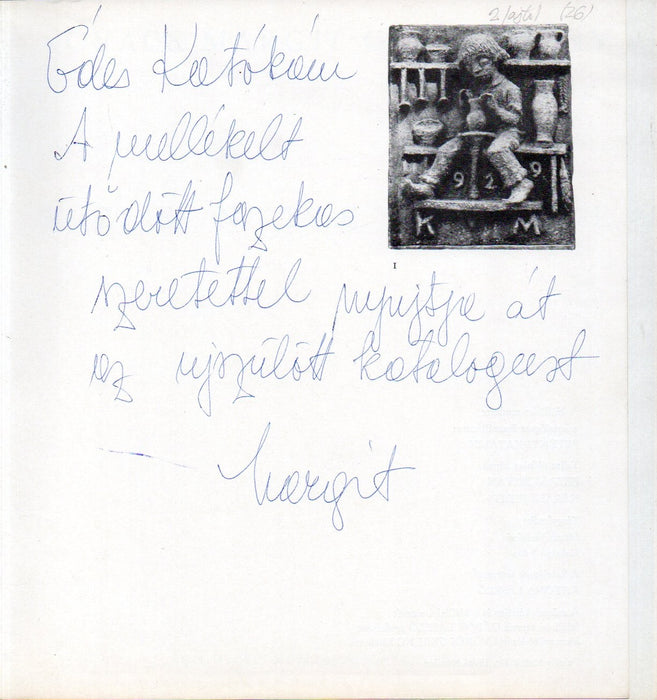 2/ajtó/ (26)
Édes Katókám
A mellékelt
ütődött fazekas
szeretettel nyujtja át
az ujszülött katalogust
Margit
1929
K M
1